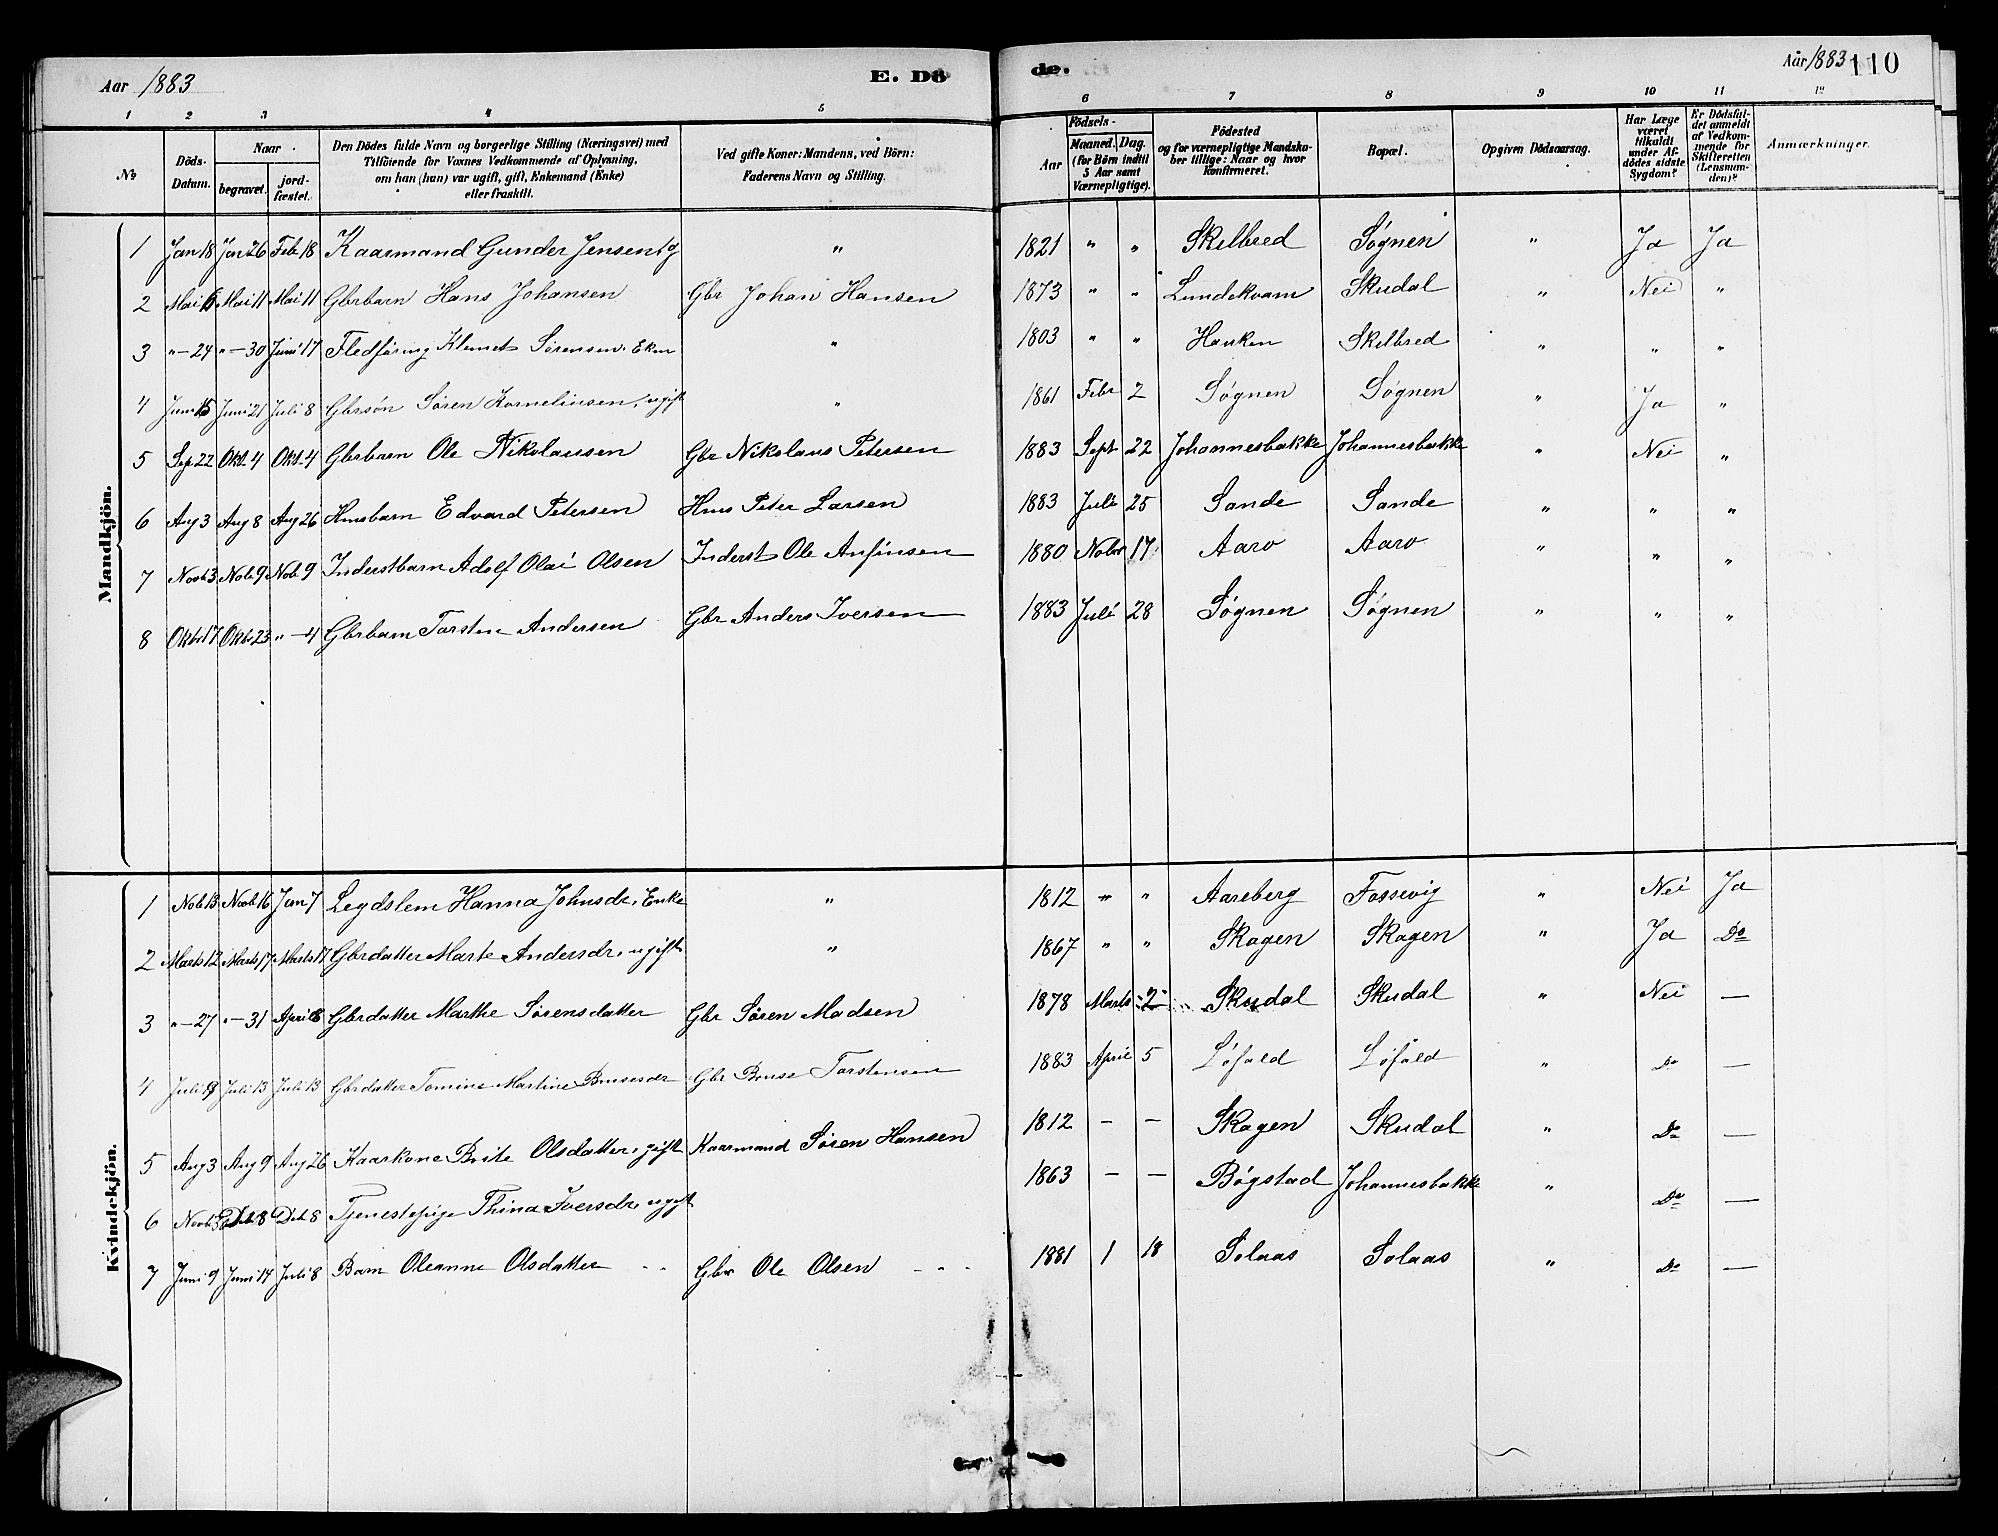 Aar 1883
E. Döde.
Aar 1883
110
1 2 3 4 5 6 7 8 9 10 11 12
№
Döds-Datum.
Naar
begravet.
jordfæstet.
Den Dödes fulde Navn og borgerlige Stilling (Næringsvei) med
Tilföiende for Voxnes Vedkommende af Oplysning,
om han (hun) var ugift, gift, Enkemand (Enke)
eller fraskilt.
Ved gifte Koner: Mandens, ved Börn:
Faderens Navn og Stilling.
Födsels-
Aar
Maaned. Dag.
(for Börn indtil
5 Aar samt
Værnepligtige).
Födested
og for værnepligtige Mandskaber tillige: Naar og hvor
konfirmeret.
Bopæl.
Opgiven Dödsaarsag.
Har Læge
været
tilkaldt
under Afdödes sidste
Sygdom?
Er Dödsfaldet anmeldt
af Vedkommende for
Skifteretten
(Lensmanden)?
Anmærkninger.
Mandkjön.
1 Jan 18 Jan 26 Feb 18 Kaarmand Gunder Jensen, g " 1821 " " Skelbred Søgnen " Ja Ja
2 Mai Mai 11 Mai 11 Gbrbarn Hans Johansen Gbr Johan Hansen 1873 " " Lundekvam Skudal " Nei "
3 "—24 "—30 Juni 17 Fledføring Klemet Sørensen. Ekm " 1803 " " Hauken Skelbred " " "
4 Juni 15 Juni 21 Juli 8 Gbrsøn Søren Kornelinsen, ugift " 1861 Febr 2 Søgnen Søgnen " Ja "
5 Sep 22 Okt. 4 Okt. 4 Gbrbarn Ole Nikolausen Gbr Nikolaus Petersen 1883 Sept 22 Johannesbakke Johannesbakke " Nei "
6 Aug 3 Aug 8 Aug 26 Husbarn Edvard Petersen Hus Peter Larsen 1883 Juli 25 Sande Sande " " "
7 Novb 3 Nob 9 Nob 9 Inderstbarn Adolf Olai Olsen Inderst Ole Anfinsen 1880 Nobr 17 Aarø Aarø " " "
8 Oktb 17 Oktb 23 "—4 Gbrbarn Torsten Andersen Gbr Anders Iversen 1883 Juli 28 Søgnen Søgnen " " "
Kvindekjön.
1 Nob 13 Novb 16 Jan 7 Legdslem Hanna Johnsdr, Enke " 1812 " " Aareberg Fossevig " Nei Ja
2 Marts 12 Marts 17 Marts 17 Gbrdatter Marte Andersdr, ugift " 1867 " " Skagen Skagen " Ja Do
3 "—27 "—31 April 8 Gbrdatter Marthe Sørensdatter Gbr Søren Madsen 1878 Marts 2 Skudal Skudal " Nei —
4 Juli Juli 13 Juli 13 Gbrdatter Tomine Martine Brusesdr Gbr Bruse Torstensen 1883 April 5 Løfald Løfald " Do —
5 Aug 3 Aug 9 Aug 26 Kaarkone Brite Olsdatter, gift Kaarmand Søren Hansen 1812 — — Skagen Skudal " Do —
6 Novb Deb 8 Deb 8 Tjenestepige Thina Iversdr, ugift 1863 — — Bøgstad Johannesbakke " Do —
7 Juni 9 Juni 14 Juli 8 Barn Oleanne Olsdatter Gbr Ole Olsen 1881 1 18 Solaas Solaas " Do —